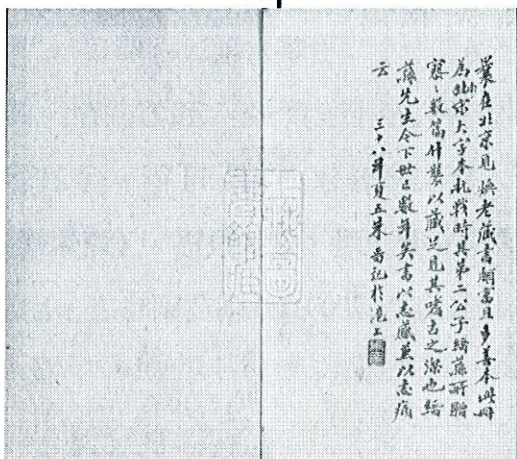 曩在北京見煥老藏書頗富且多善本此册
為北宋大字本抗戰時其第二公子緝蓀所贈
寥寥數篇什襲以藏足見其嗜古之深也緝
蓀先生今下世已數年矣書以志感並以志痛
云　三十八年夏五朱 記於滬上